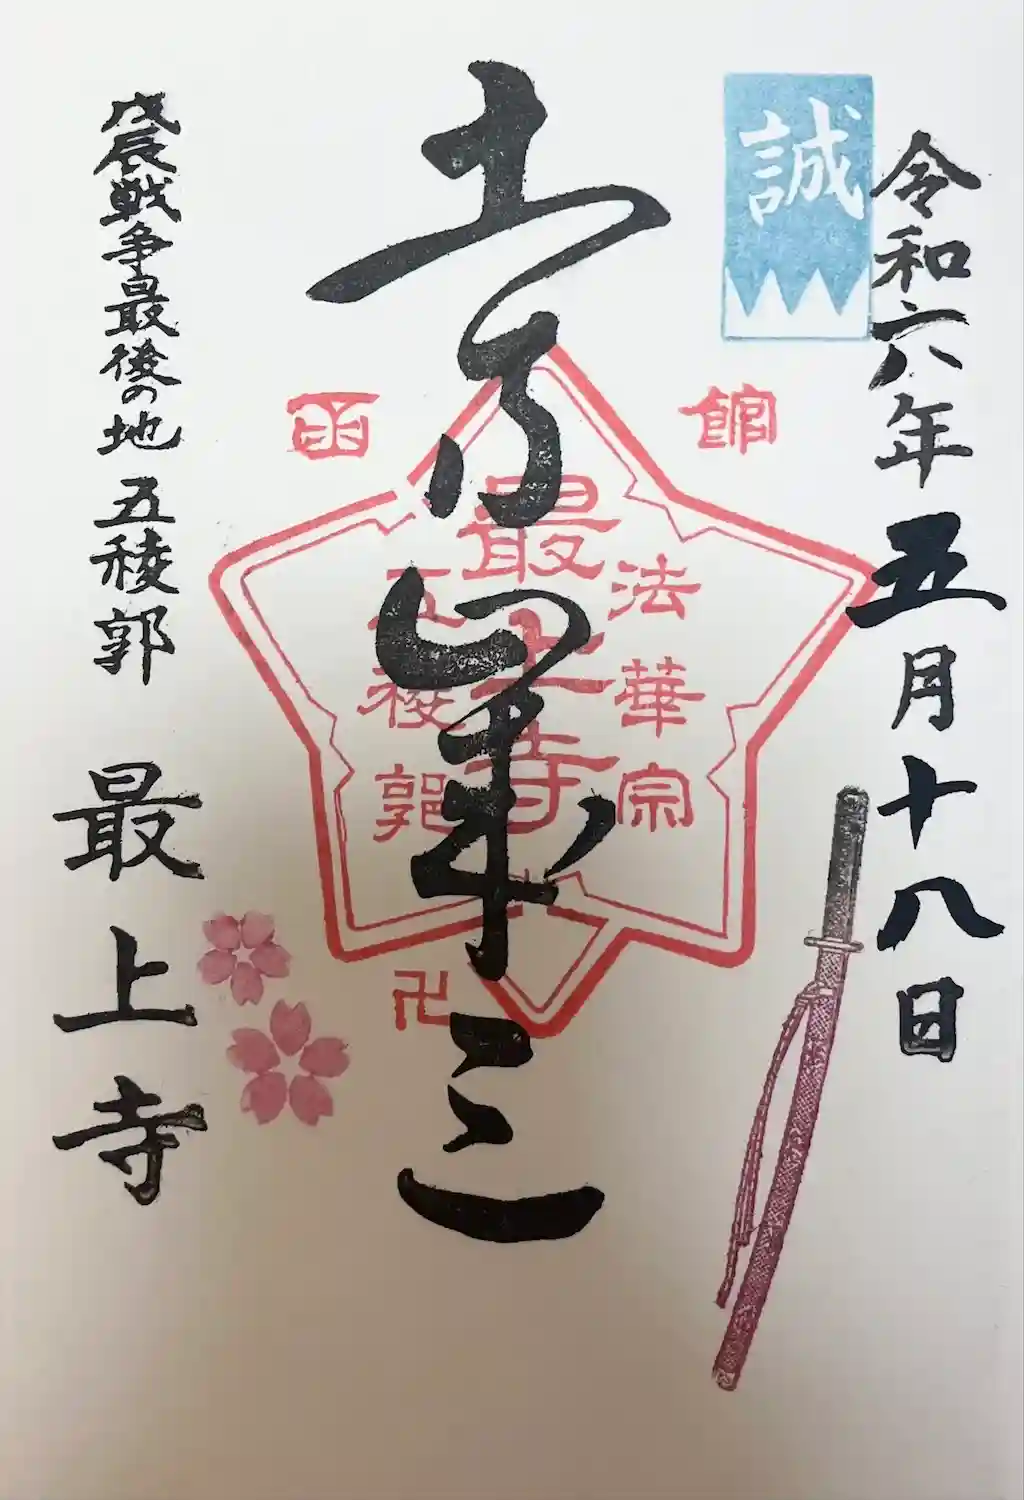 令和六年五月十八日
誠
土方歳三
函館
法華宗
最上寺
五稜郭
卍
戊辰戦争最後の地 五稜郭 最上寺